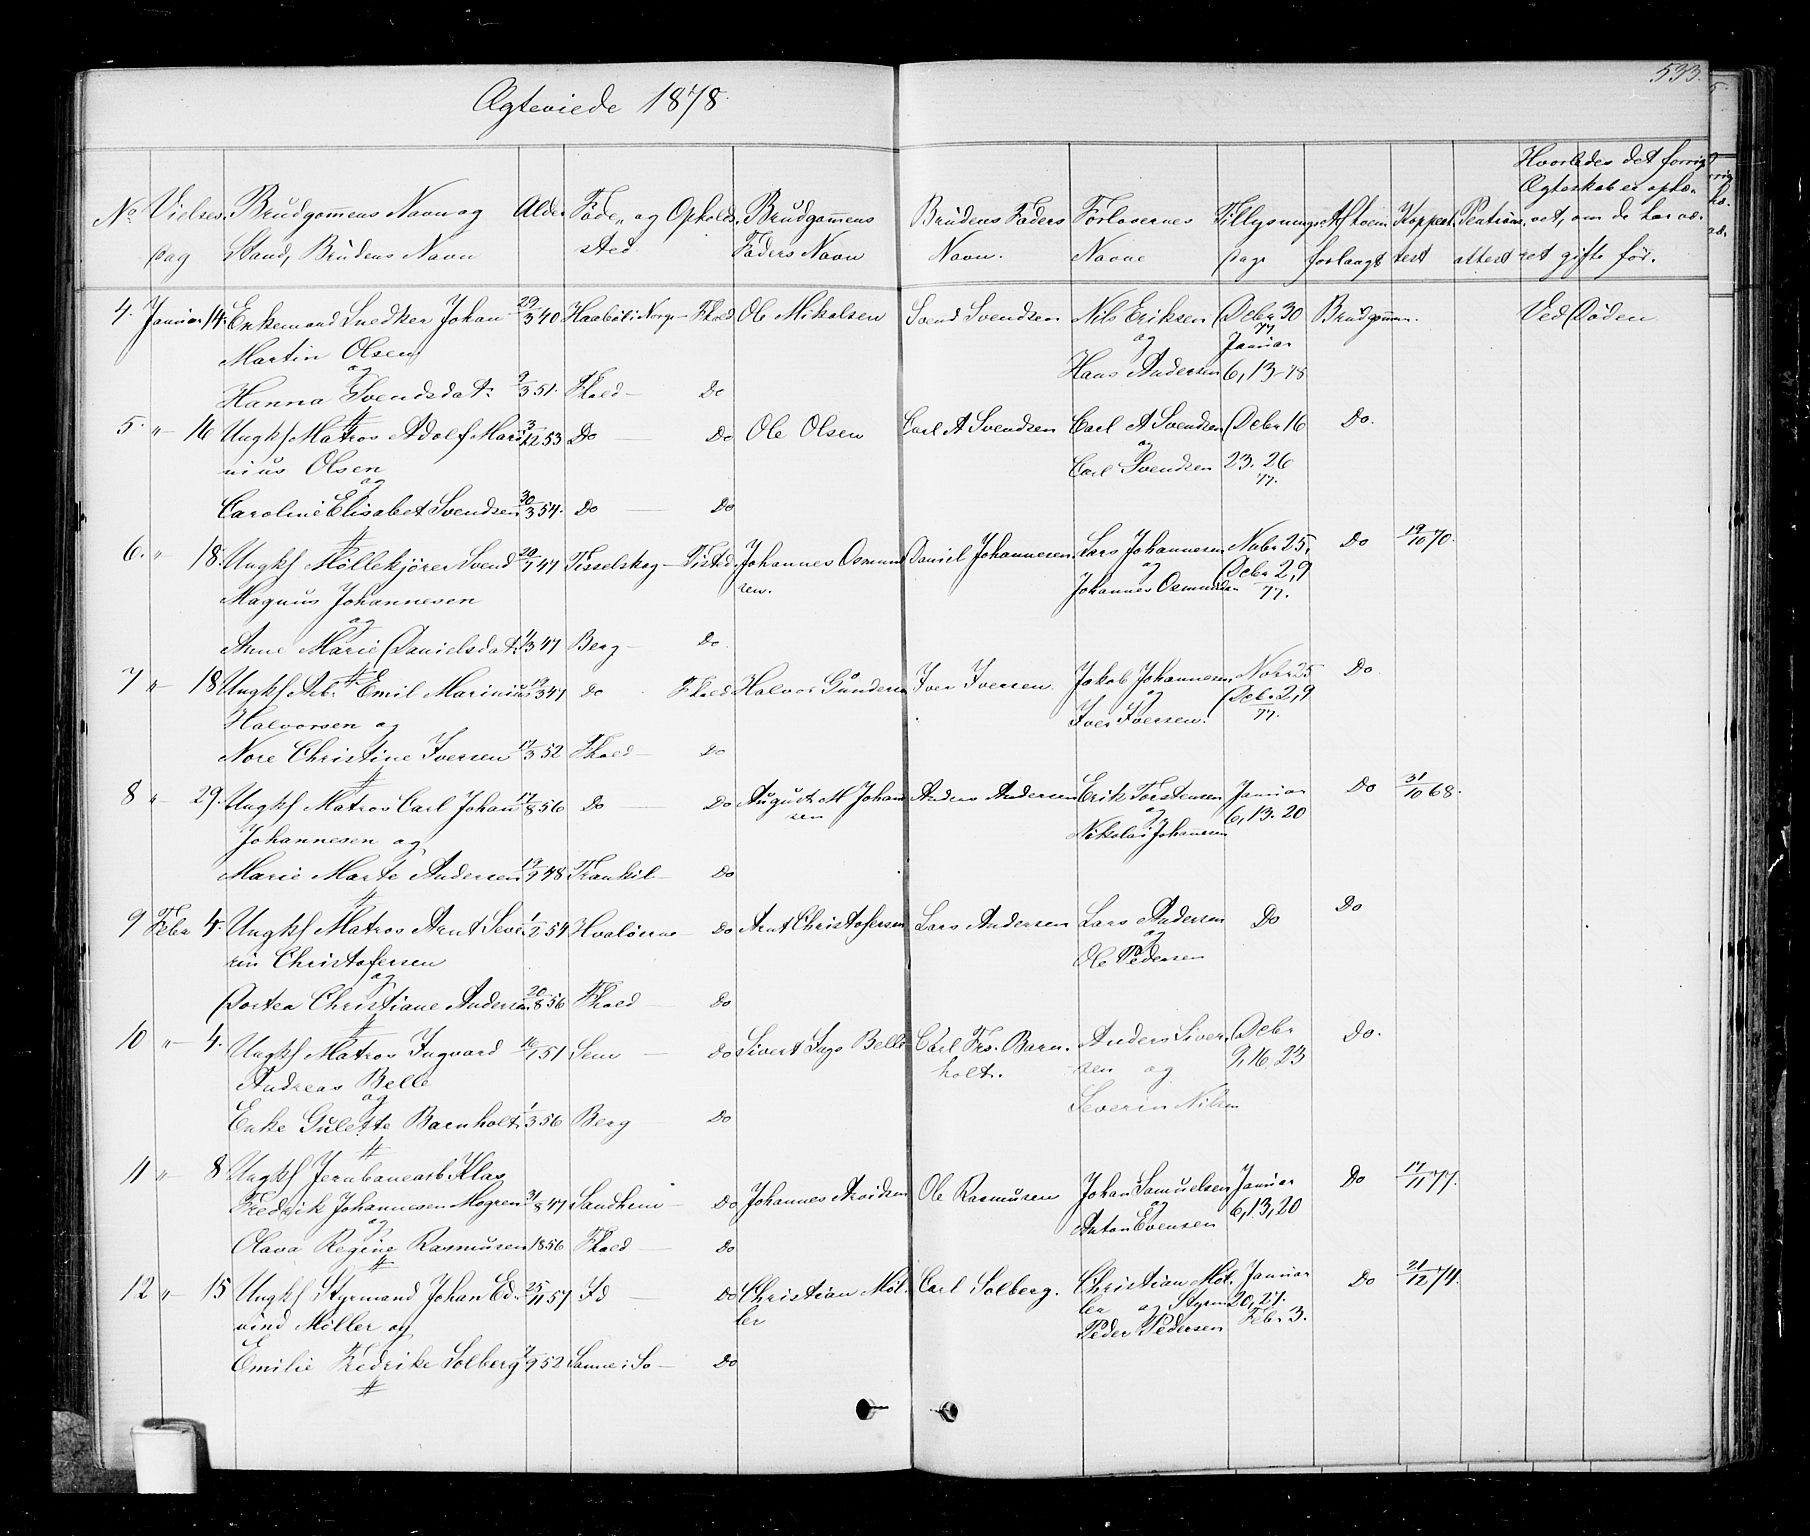 533.
Ægteviede 1878.
No Vielses dag
Brudgomens Navn og Stand, Brudens Navn
Alder
Føde, og Opholds, sted
Brudgommens Faders Navn
Brudens Faders Navn.
Forlovernes Navne
Tillysnings dage
Af hvem forlangt
Koppeat test
Attest
Hvorledes det forrige Ægteskab er ophæ- vet, om de har væ- ret gifte før.
4. Januar 14. Enkemand Snedker Johan 29/3 40 Norge - Fhald Ole Mikalsen Svend Svendsen Nils Eriksen Debr 30 Brudgommen. Ved Døden
77
Martin Olsen og Januar
og Hans Andersen 6, 13-78
Hanna Svendsdatr 9/3 51. Fhald - Do
5. " 16 Ungkf Matros Adolf Mari 3/12 53 Do Do Ole Olsen Carl A Svendsen Carl A Svendsen Debr 16 Do.
nius Olsen og Carl Svendsen 23. 26
og 77.
Caroline Elisabet Svendsen 30/3 54. Do - Do
6. " 18. Ungkf Møllekjører Svend 20/7 47 Tisselskog - Tistd. Johannes Osmund Daniel Johannesen. Lars Johannesen Nobr 25, Do 19/10 70.
Magnus Johannesen sen. og Debr 2,9
og Johannes Osmundsen 77.
Anne Marie Danielsdatr 4/3 47 Berg - Do
7 " 18 Ungkf Arb. Emil Marinius 12/3 47 Do Fhald Halvor Gundersen Iver Iversen. Jakob Johannesen Nobr 25 Do.
Halvorsen og og Debr 2,9
Iver Iversen. 77.
Nore Christine Iversen 17/3 52 Fhald - Do
8 " 29. Ungkf Matros Carl Johan 17/8 56 Do - Do August M Johan Anders Andersen Erik Torstensen Januar Do 31/10 68.
sen og 6, 13. 20
Johannesen og Nikolai Johansen
Marie Marte Andersen 19/9 48 Trankil - Do
9 Febr 4. Ungkf Matros Arnt Seve 1/2 54 Hvaløerne - Do Arnt Christofersen Lars Andersen Lars Andersen Do Do
rin Christofersen og
og Ole Pedersen
Dortea Christiane Andersen 20/8 56 Fhald - Do
10 " 4. Ungkf Matros Ingvard 16/1 51 Sem - Do Sivert Belle Carl Frs. Barn. Anders Siver Debr Do.
Andreas Belle holt. sen og 9, 16, 23
og Severin Nilsen
Enke Gulette Barnholt 1/3 56 Berg - Do
11 " 8 Ungkf Jernbanearb Klas
Fredrik Johannesen Mogren 31/8 47 Sandhem - Do Johannes Arvidsen Ole Rasmusen Johan Samuelsen Januar Do 17/11 77.
og og 6, 13, 20
Anton Evensen
Olava Regine Rasmusen 1856 Fhald - Do
12 " 15 Ungkf Styrmand Johan Ed- 25/11 57 Id - Do Christian Møl- Carl Solberg. Christian Møl- Januar Do 21/12 74.
vind Møller og ler ler og Styrm 20, 27.
Peder Pedersen Febr 3.
Emilie Fredrike Solberg 7/9 52 Sanne i So - Do